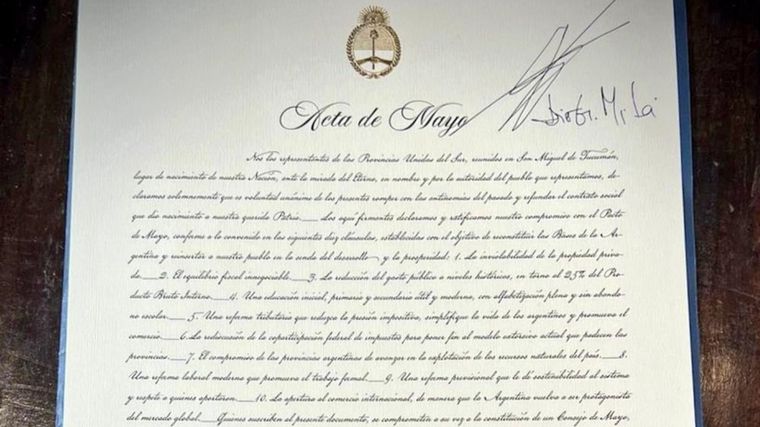 Acta de Mayo
Nos los representantes de las Provincias Unidas del Sur, reunidos en San Miguel de Tucumán,
lugar de nacimiento de nuestra Nación, ante la mirada del Eterno, en nombre y por la autoridad del pueblo que representamos, de-
claramos solemnemente que es voluntad unánime de los presentes romper con las antinomias del pasado y refundar el contrato social
que dio nacimiento a nuestra querida Patria. Los aquí firmantes declaramos y ratificamos nuestro compromiso con el Pacto
de Mayo, conforme a lo convenido en las siguientes diez cláusulas, establecidas con el objetivo de reconstituir las Bases de la Ar-
gentina y reinsertar a nuestro pueblo en la senda del desarrollo y la prosperidad: 1. La inviolabilidad de la propiedad priva-
da. 2. El equilibrio fiscal innegociable. 3. La reducción del gasto público a niveles históricos, en torno al 25% del Pro-
ducto Bruto Interno. 4. Una educación inicial, primaria y secundaria útil y moderna, con alfabetización plena y sin abando-
no escolar. 5. Una reforma tributaria que reduzca la presión impositiva, simplifique la vida de los argentinos y promueva el
comercio. 6. La rediscusión de la coparticipación federal de impuestos para poner fin al modelo extorsivo actual que padecen las
provincias. 7. El compromiso de las provincias argentinas de avanzar en la explotación de los recursos naturales del país. 8.
Una reforma laboral moderna que promueva el trabajo formal. 9. Una reforma previsional que le dé sustentabilidad al sistema
y respete a quienes aportaron. 10. La apertura al comercio internacional, de manera que la Argentina vuelva a ser protagonista
del mercado global. Quienes suscriben al presente documento, se comprometen a su vez a la constitución de un Consejo de Mayo,